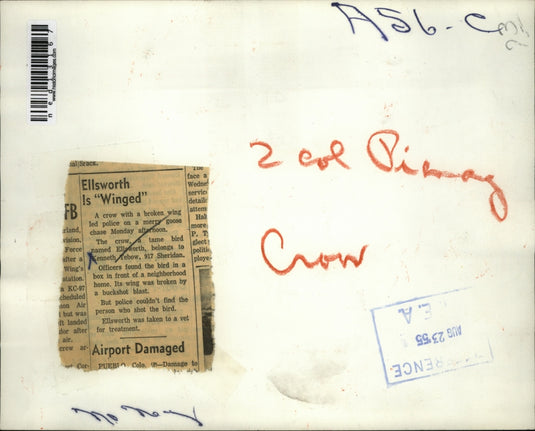 A56-C
2 col
Crow
al Srack.
Ellsworth
Is "Winged"
A crow with a broken wing
led police on a merry goose
chase Monday afternoon.
The crow, a tame bird
named Ellsworth, belongs to
Kenneth Yebow, 917 Sheridan.
Officers found the bird in a
box in front of a neighborhood
home. Its wing was broken by
a buckshot blast.
But police couldn't find the
person who shot the bird.
Ellsworth was taken to a vet
for treatment.
Airport Damaged
PUEBLO, Colo. Damage to
FB
KC-97
AUG 23 '55
E. A.
RENCE